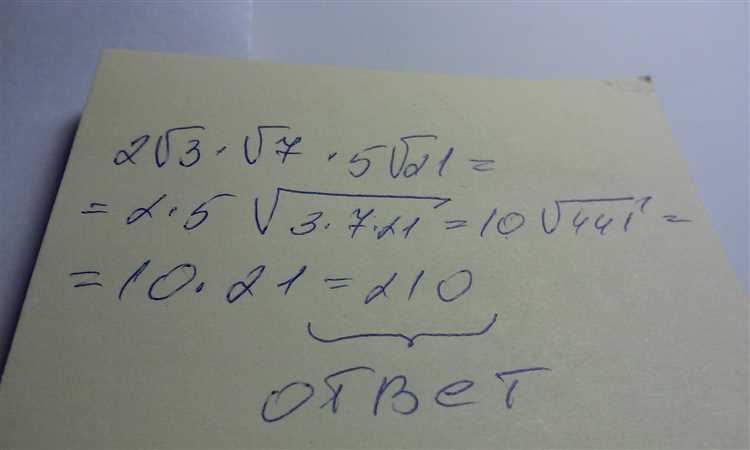 2√3·√7·5√21=
=2·5√3·7·21=10√441=
=10·21=210
ответ